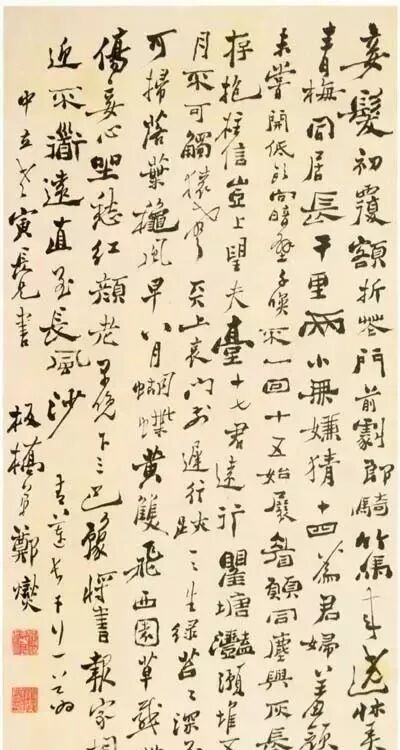 妾髮初覆額折花門前劇郎騎竹馬來遶牀
青梅同居長干里兩小無嫌猜十四為君婦羞顏
未嘗開低頭向暗壁千喚不一回十五始展眉願同塵與灰長
存抱柱信豈上望夫臺十七君遠行瞿塘灩澦堆
月不可觸猿聲天上哀門前遲行跡一一生綠苔苔深
可掃落葉秋風早八月蝴蝶黃雙飛西園草感
傷妾心坐愁紅顏老早晚下三巴豫將書報家相
近不道遠直至長風沙 青蓮長干行一首為
中立老寅長兄書
板橋弟鄭燮